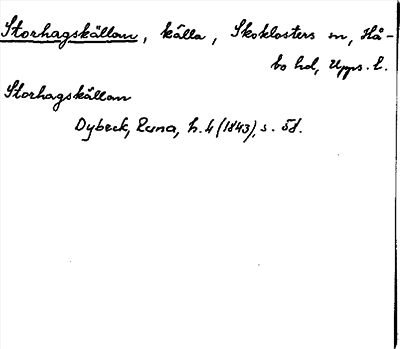 Storhagskällan, källa, Skoklosters sn, Hå-
bo hd, Upps. l.
Storhagskällan
Dybeck, Runa, h. 4 (1843), s. 58.